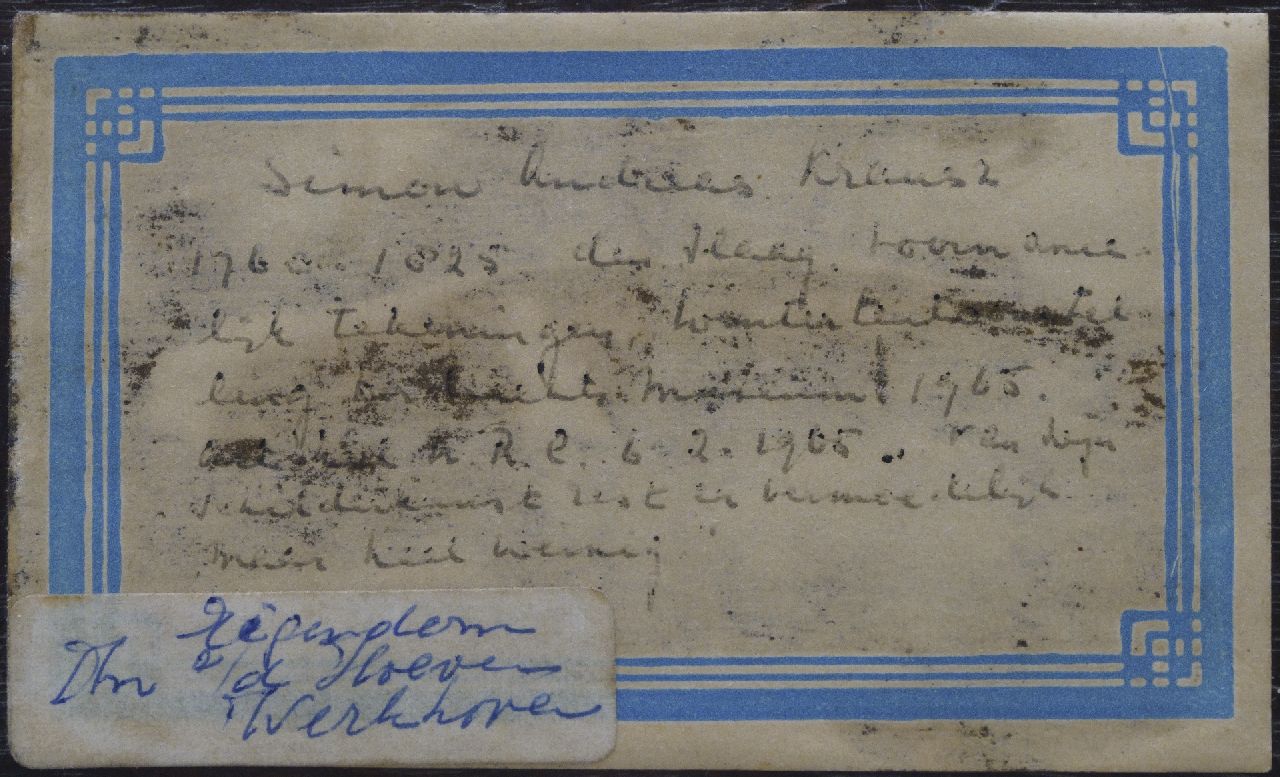 Simon Andreas Krausz
1760 - 1825 den Haag. voorname-
lijk tekeningen,
ling Museum 1965.
N.R.C. 6-2-1965. Van zijn
schilderkunst rest er vermoedelijk
maar heel weinig
Eigendom
Dhr v/d Hoeven
Werkhoven